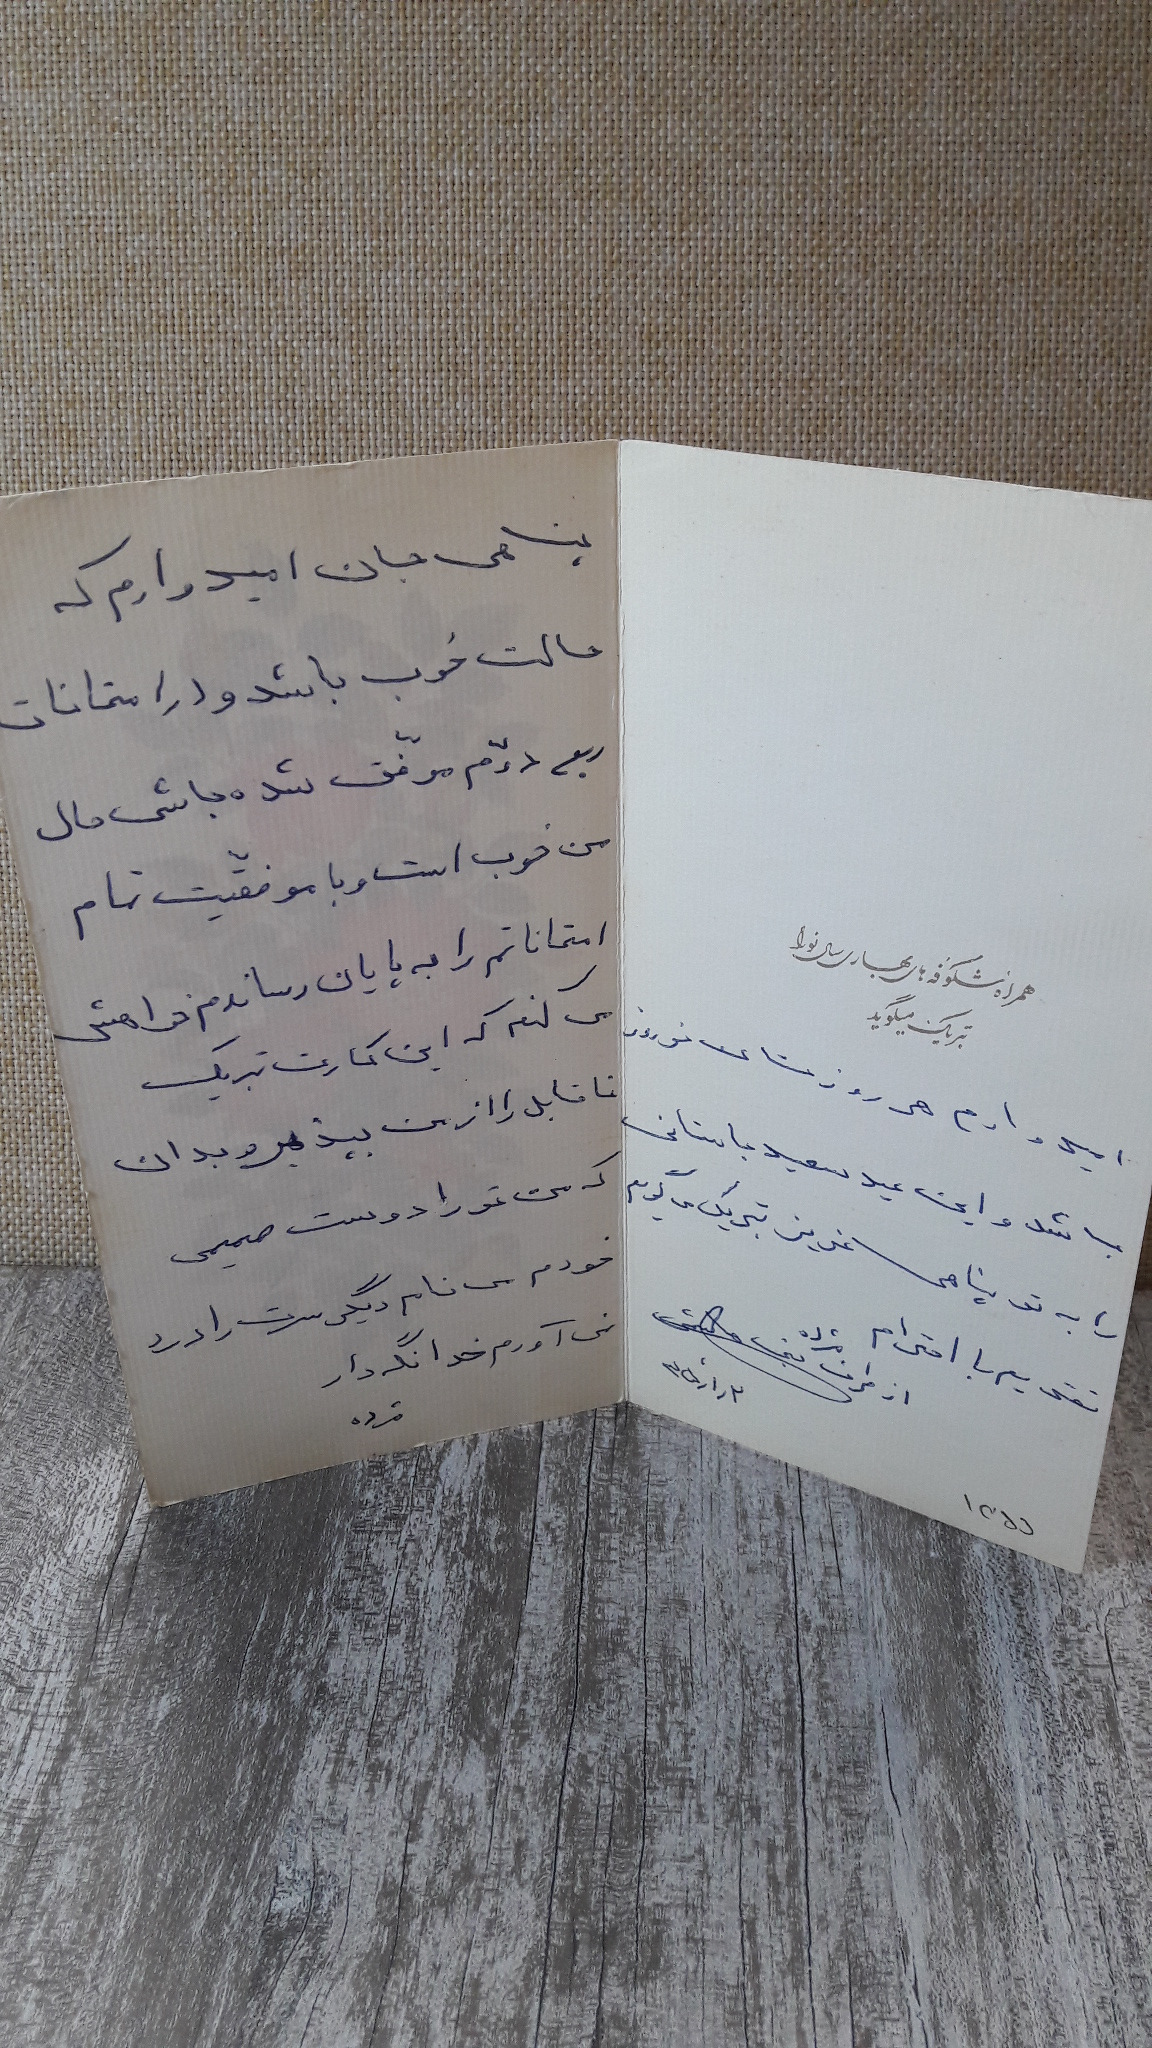 همراه شکوفه های بهاری سال نو را
تبریک میگوید
امیدوارم هر روزت ای نوروز
باشد و این عید سعید باستانی
را به تو پناهی عزیز تبریک می گویم
تقدیم با احترام
از طرف مژده
۱۳۵۵
پناهی جان امیدوارم که
حالت خوب باشد و در امتحانات
ربع دوّم موفّق شده باشی حال
من خوب است و با موفقیّت تمام
امتحاناتم را به پایان رساندم خواهش
می کنم که این کارت تبریک
ناقابل را از من بپذیر و بدان
که من تو را دوست صمیمی
خودم می نامم دیگر سرت را درد
نمی آورم خدانگهدار
مژده